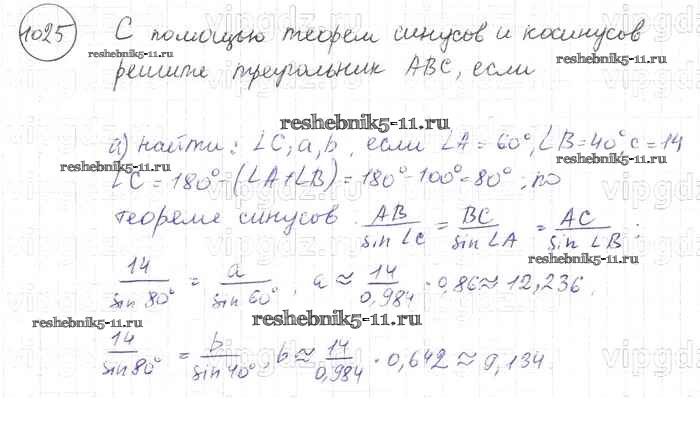 1025 С помощью теорем синусов и косинусов
reshebnik5-11.ru
решите треугольник ABC, если
reshebnik5-11.ru
а) найти: ∠C; a, b, если ∠A = 60°, ∠B = 40°, c = 14
reshebnik5-11.ru reshebnik5-11.ru
∠C = 180° - (∠A + ∠B) = 180° - 100° = 80°; по
теореме синусов. AB/sin∠C = BC/sin∠A = AC/sin∠B;
reshebnik5-11.ru
14/sin 80° = a/sin 60°, a ≈ 14/0,984 · 0,86 ≈ 12,236.
reshebnik5-11.ru reshebnik5-11.ru
14/sin 80° = b/sin 40°, b ≈ 14/0,984 · 0,642 ≈ 9,134.